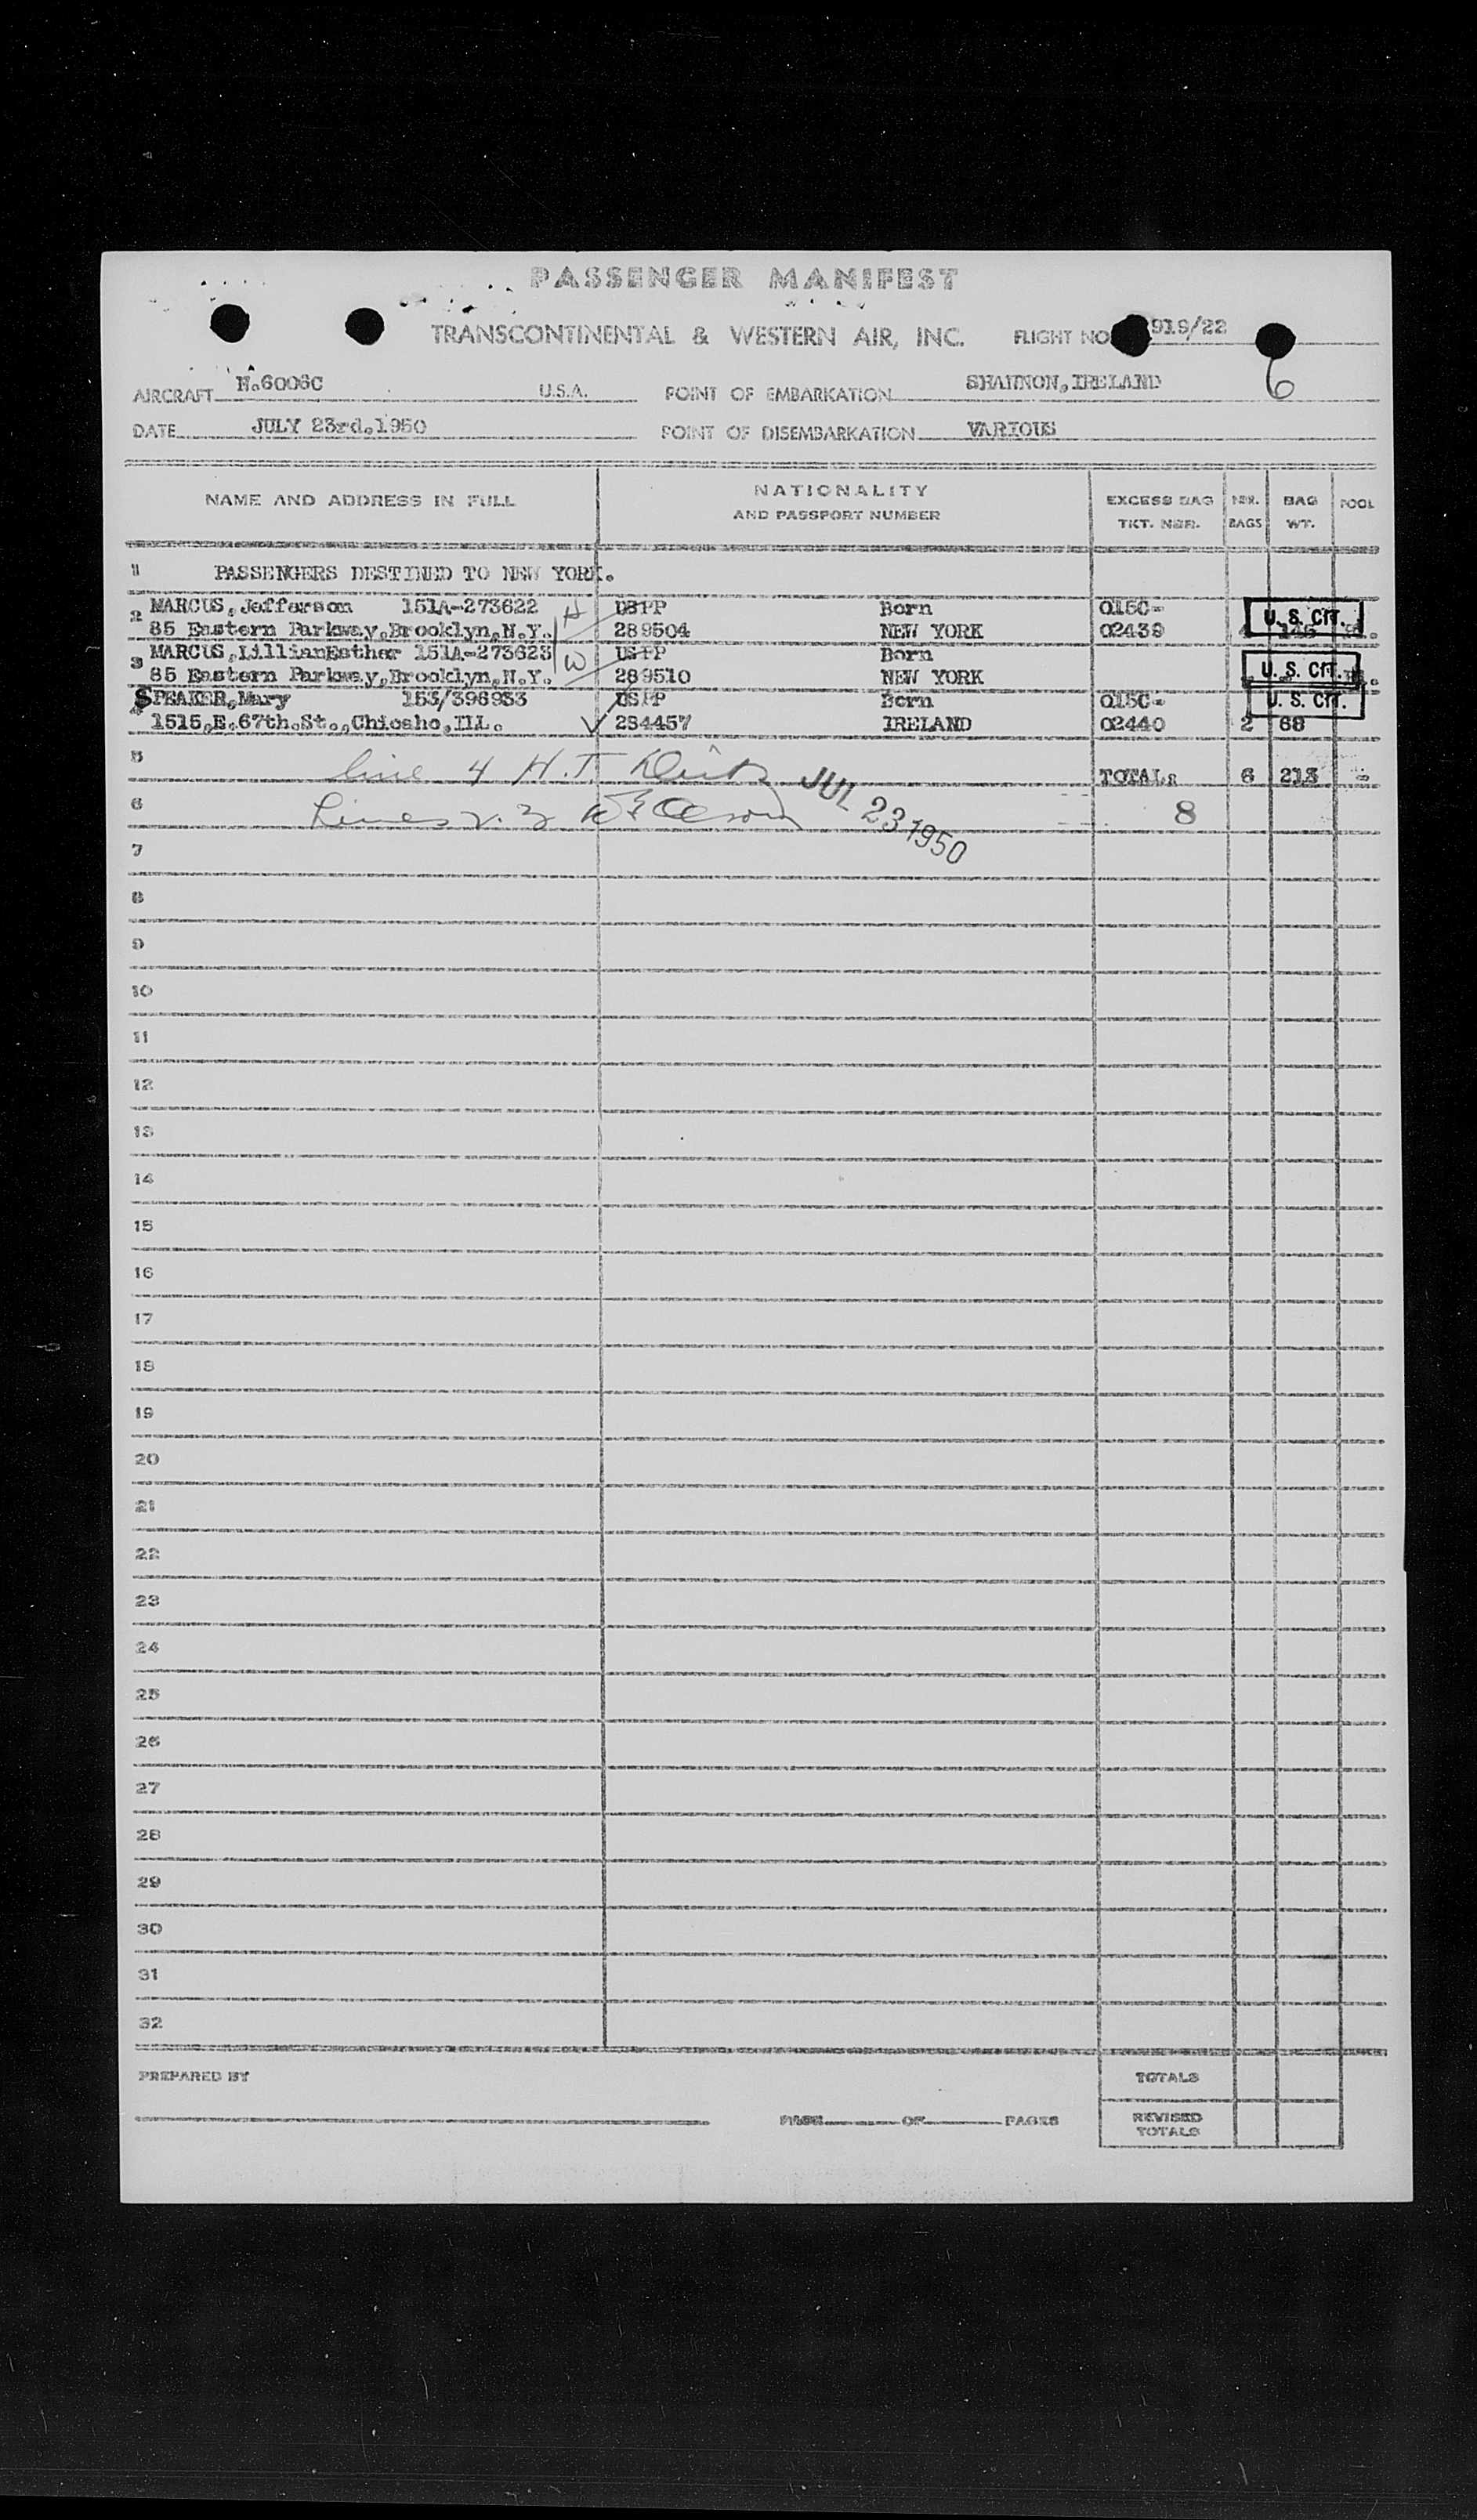 PASSENGER MANIFEST
TRANSCONTINENTAL & WESTERN AIR, INC. FLIGHT NO 919/22
AIRCRAFT N.6006C U.S.A. POINT OF EMBARKATION SHANNON,IRELAND 6
DATE JULY 23rd.1950 POINT OF DISEMBARKATION VARIOUS
NAME AND ADDRESS IN FULL NATIONALITY AND PASSPORT NUMBER EXCESS BAG TKT. NBR. NBR. BAGS BAG WT. POOL
1 PASSENGERS DESTINED TO NEW YORK.
2 MARCUS,Jefferson 151A-273622 H USPP Born 015C- U. S. CIT.
85 Eastern Parkway,Brooklyn,N.Y. 289504 NEW YORK 02439 4 145
3 MARCUS,LillianEsther 151A-273623 W USPP Born U. S. CIT.
85 Eastern Parkway,Brooklyn,N.Y. 289510 NEW YORK
4 SPEAKER,Mary 153/396933 USPP Born 015C- U. S. CIT.
1515,E.67th.St.,Chicaho,Ill. ✓ 284457 IRELAND 02440 2 68
5 Line 4 H.T. TOTAL: 6 213 -
6 Lines 2.3 JUL 23 1950 8
7
8
9
10
11
12
13
14
15
16
17
18
19
20
21
22
23
24
25
26
27
28
29
30
31
32
PREPARED BY TOTALS
PAGE OF PAGES REVISED TOTALS